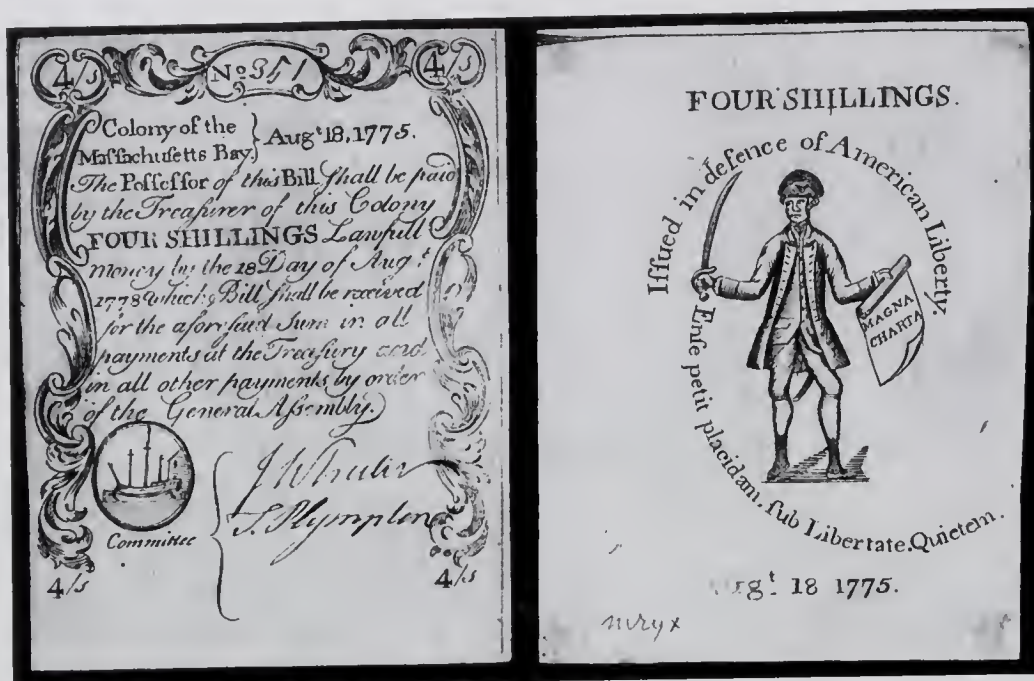 4/s
No 351
4/s
Colony of the } Augt 18, 1775.
Maſſachuſetts Bay.
The Poſſeſſor of this Bill ſhall be paid
by the Treaſurer of this Colony
FOUR SHILLINGS Lawfull
money by the 18 Day of Augt
1778 which Bill ſhall be received
for the aforeſaid Sum in all
payments at the Treaſury and
in all other payments by order
of the General Aſſembly.
Committee
S. Plympton
4/s
4/s
FOUR SHILLINGS.
Iſſued in defence of American Liberty.
MAGNA
CHARTA
Enſe petit placidam, ſub Libertate Quietem.
Augt 18 1775.